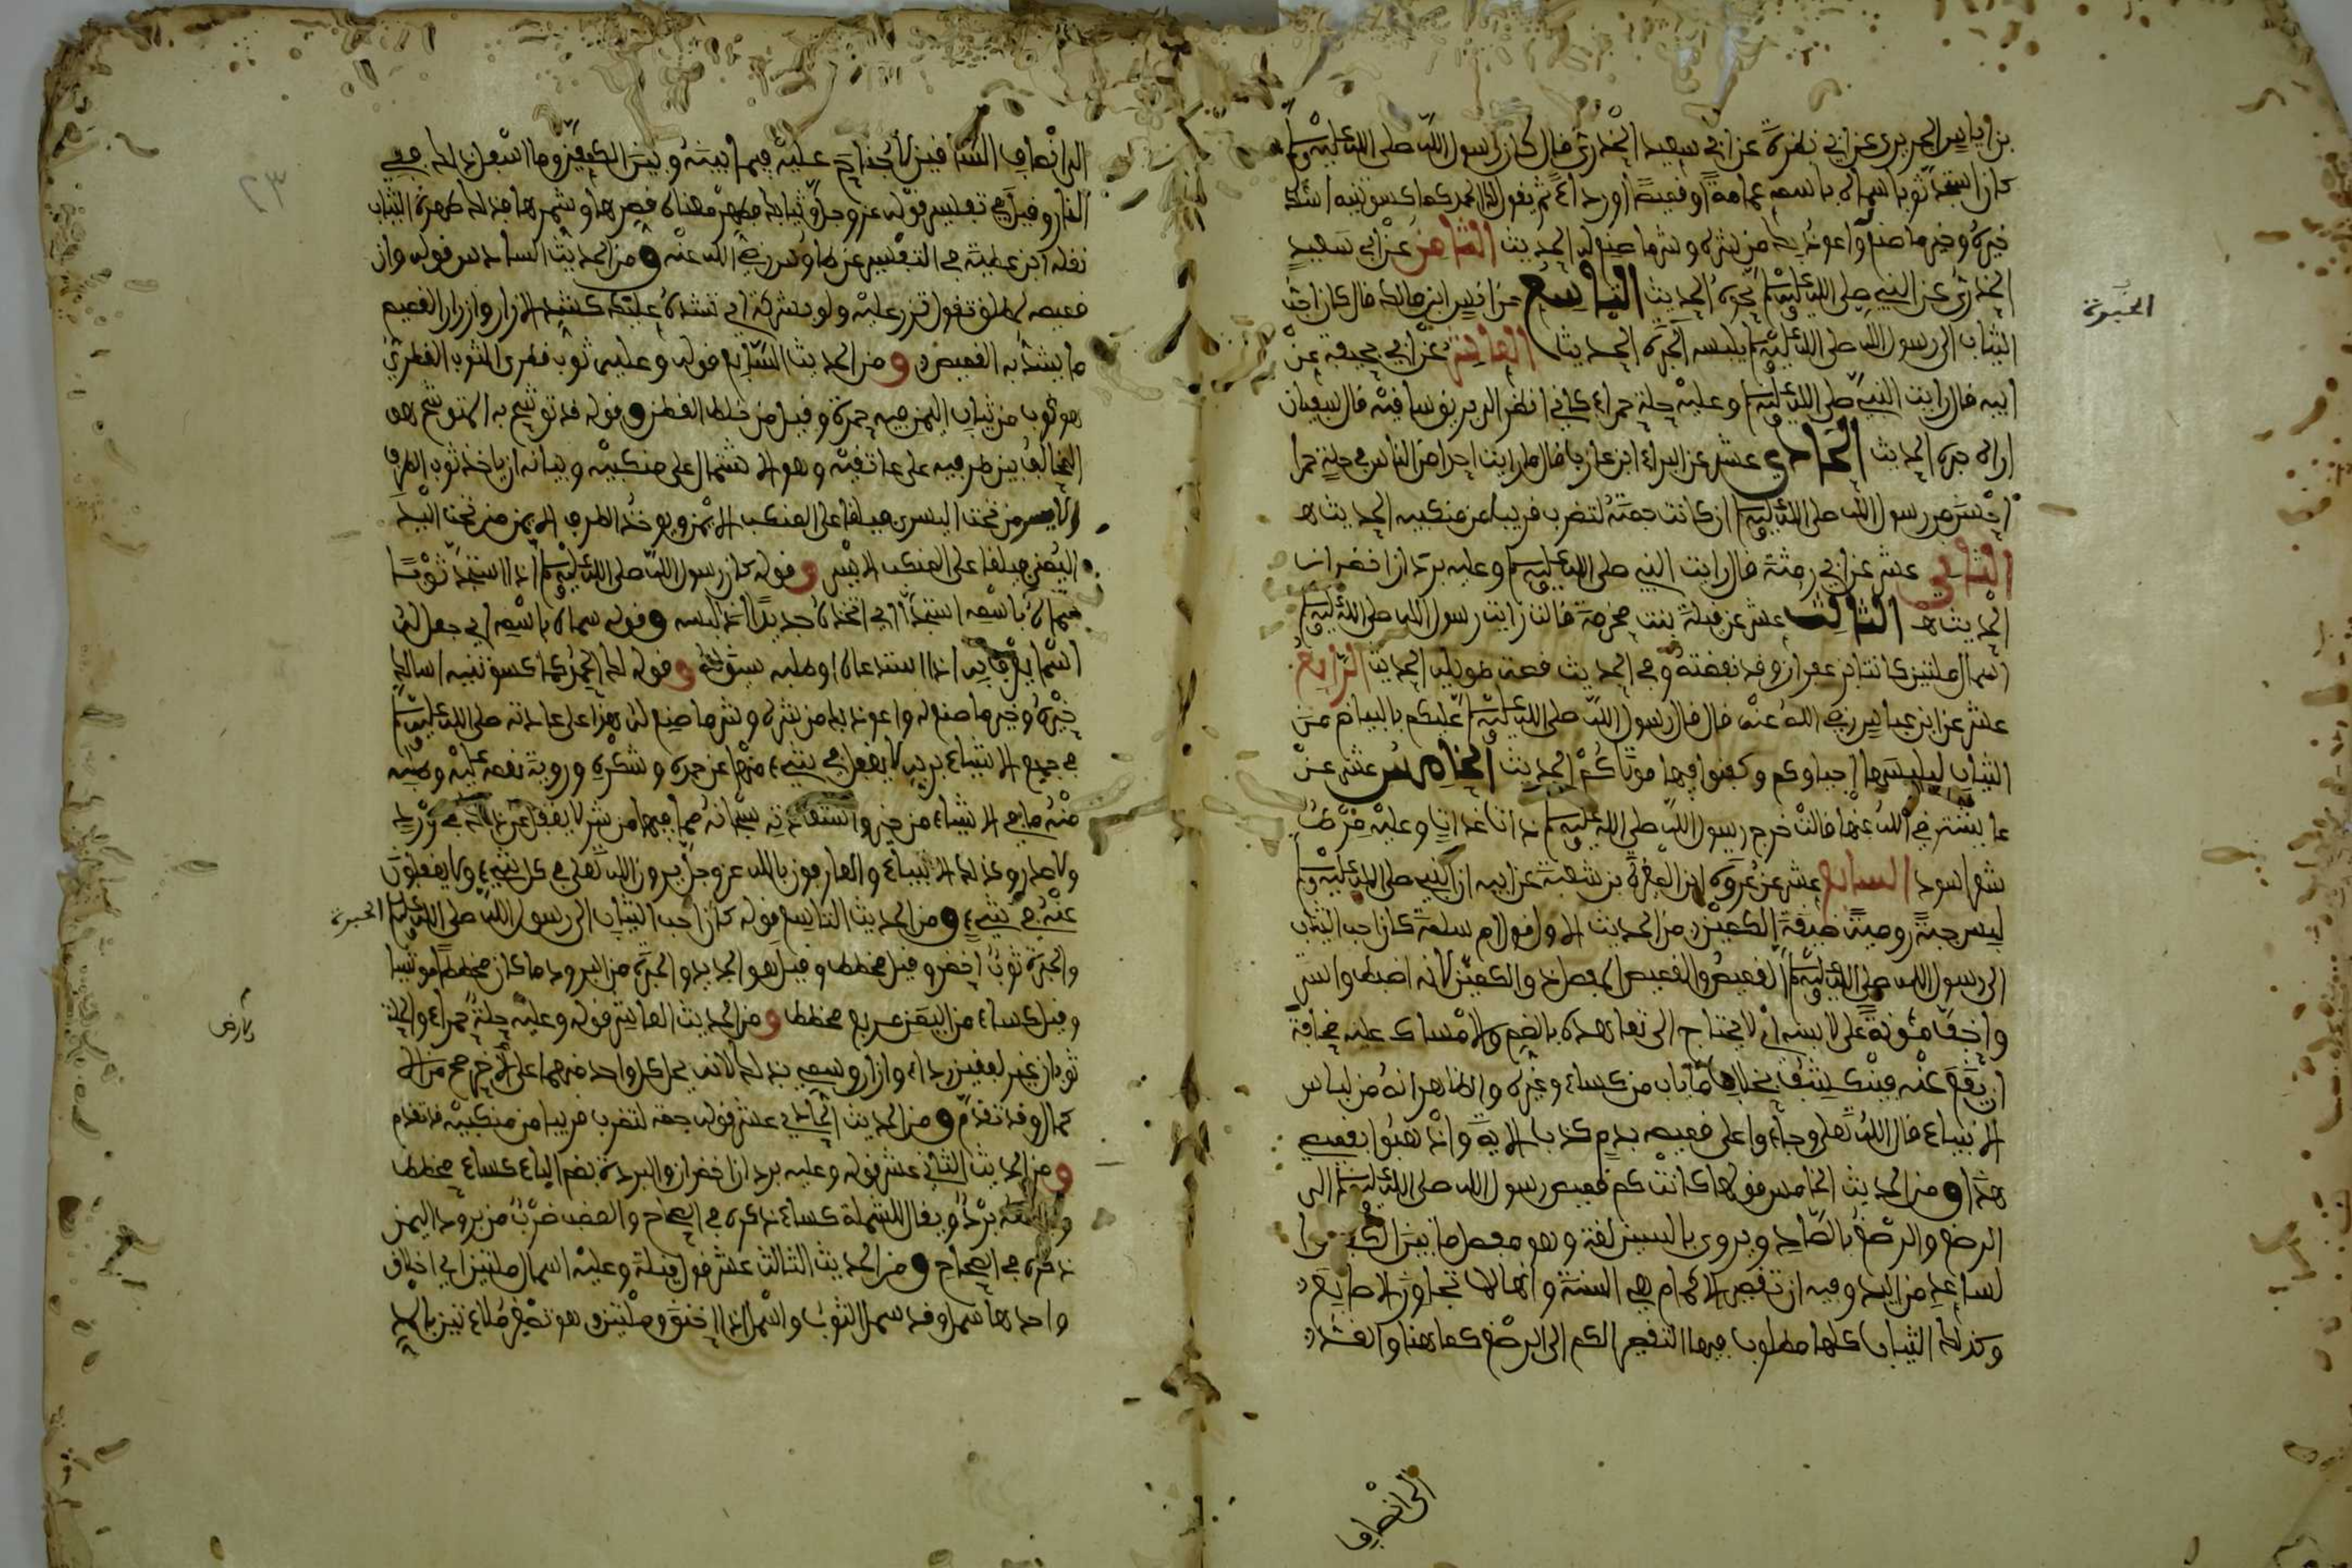 بن اياس الجريري عن ابي نضرة عن ابي سعيد الخدري قال كان رسول الله صلى الله عليه وسلم
كان استجد ثوبا سماه باسمه عمامة او قميصا او رداء ثم يقول اللهم لك الحمد كما كسوتنيه اسئلك
خيره وخير ما صنع له واعوذ بك من شره وشر ما صنع له الحديث الثامن عن ابي سعيد
الخدري عن النبي صلى الله عليه وسلم نحوه الحديث التاسع عن انس ابن مالك قال كان احب
الثياب الى رسول الله صلى الله عليه وسلم يلبسه الحبرة الحديث العاشر عن ابي جحيفة عن
ابيه قال رايت النبي صلى الله عليه وسلم وعليه حلة حمراء كاني انظر الى بريق ساقيه قال سفيان
اراه حبرة الحديث الحادي عشر عن البراء ابن عازب قال ما رايت احدا من الناس في حلة حمرا
احسن من رسول الله صلى الله عليه وسلم ان كانت جمته لتضرب قريبا من منكبيه الحديث
الثاني عشر عن ابي رمثة قال رايت النبي صلى الله عليه وسلم وعليه بردان اخضران
الحديث الثالث عشر عن قيلة بنت مخرمة قالت رايت رسول الله صلى الله عليه وسلم
اسمال مليتين كانتا بزعفران وقد نفضته وفي الحديث قصة طويلة الحديث الرابع
عشر عن ابن عباس رضي الله عنه قال قال رسول الله صلى الله عليه وسلم عليكم بالبياض من
الثياب ليلبسها احياوكم وكفنوا فيها موتاكم الحديث الخامس عشر عن
عايشة رضي الله عنها قالت خرج رسول الله صلى الله عليه وسلم ذات غداة وعليه مرط
شعر اسود السابع عشر عن عروة ابن المغيرة بن شعبة عن ابيه ان النبي صلى الله عليه وسلم
لبس جبة رومية ضيقة الكمين من الحديث الاول قول ام سلمة كان احب الثياب
الى رسول الله صلى الله عليه وسلم القميص والقميص المفصل ذو الكمين لانه اضبط واستر
واخف مئونة على لابسه اذ لا يحتاج الى تعاهده بالضم والامساك عليه مخافة
ان يقع عنه فينكشف بخلاف ما بان من كساء وغيره والظاهر انه من لباس
الانبياء قال الله تعلى وجاءوا على قميصه بدم كذب الاية واذهبوا بقميصي
هذا ومن الحديث الخامس قولها كانت كم قميص رسول الله صلى الله عليه وسلم الى
الرصغ والرصغ بالصاد ويروى بالسين لغة وهو مفصل ما بين الكف وا
لساعد من اليد وفيه ان تقصير الاكمام هي السنة وانها لا تجاوز الاصابع
وكذلك الثياب كلها مطلوب فيها التقصير الكم الى الرصغ كما هنا والقشد
الحبرة
الى انصاف
الى انصاف الساقين لا جناح عليه فيما بينه وبين الكعبين وما اسفل من ذلك ففي
النار وقيل في تفسير قوله عز وجل وثيابك فطهر معناه قصرها وشمرها فذلك طهرة الثياب
نقله ابن عطية في التفسير عن طاوس رضي الله عنه ومن الحديث السادس قوله وان
قميصه لمطلق تقول تزر عليه ولو بشوكة اي تشده عليك كشد الازار وازرار القميص
ما يشد به القميص ومن الحديث السابع قوله وعليه ثوب قطري الثوب القطري
هو ثوب من ثياب اليمن فيه حمرة وقيل من خلط القطن وقوله قد توشح به المتوشح هو
المخالف بين طرفيه على عاتقيه وهو الاشتمال على منكبيه وبيانه ان ياخذ ثوبه الطرف
الايسر من تحت اليسرى فيلقا على المنكب الايمن ويوخذ الطرف الايمن من تحت اليد
اليمنى فيلقا على المنكب الايسر وقوله كان رسول الله صلى الله عليه وسلم اذا استجد ثوبا
سماه باسمه استجد اي اتخذه جديدا اذا لبسه وقوله سماه باسمه اي جعل له
اسما اذا استدعاه اوطلبه وقوله لك الحمد كما كسوتنيه اسالك
خيره وخير ما صنع له واعوذ بك من شره وشر ما صنع له هذا على عادته صلى الله عليه وسلم
في جميع الاشياء يريد لا يغفل في شيء منها عن حمده وشكره وروية نعمه عليه وطلبه
منه ما في الاشياء من خير واستعاذته سبحانه مما فيها من شر لا يغفل عن ذلك في ورد
ولا صدر وكذلك الانبياء والعارفون بالله عز وجل يرون الله تعلى في كل شيء ولا يغفلون
عنه في شيء ومن الحديث التاسع قوله كان احب الثياب الى رسول الله صلى الله عليه وسلم الحبرة
والحبرة ثوب اخضر وقيل مخطط وقيل هو الجديد والحبرة من البرود ما كان مخططا موشيا
وقيل كساء من اليمن مربع مخطط ومن الحديث العاشر قوله وعليه حلة حمراء والحلة
ثوبان غير لفقين رداء وازار وسمي بذلك لانه يحل كل واحد منهما على الاخر
وقد تقدم ومن الحديث الحادي عشر قوله جمته لتضرب قريبا من منكبيه قد تقدم
ومن الحديث الثاني عشر قوله وعليه بردان اخضران والبردة بضم الباء كساء مخطط
برد ويقال للشملة كساء ذكره في الصحاح والعصب ضرب من برود اليمن
ذكره في الصحاح ومن الحديث الثالث عشر قول قيلة وعليه اسمال مليتين اي اخلاق
واحدها سمل وقد سمل الثوب واسمل اذا اخلق ومليتين وهو تصغير ملاءتين بالمد
الارض
٢٣